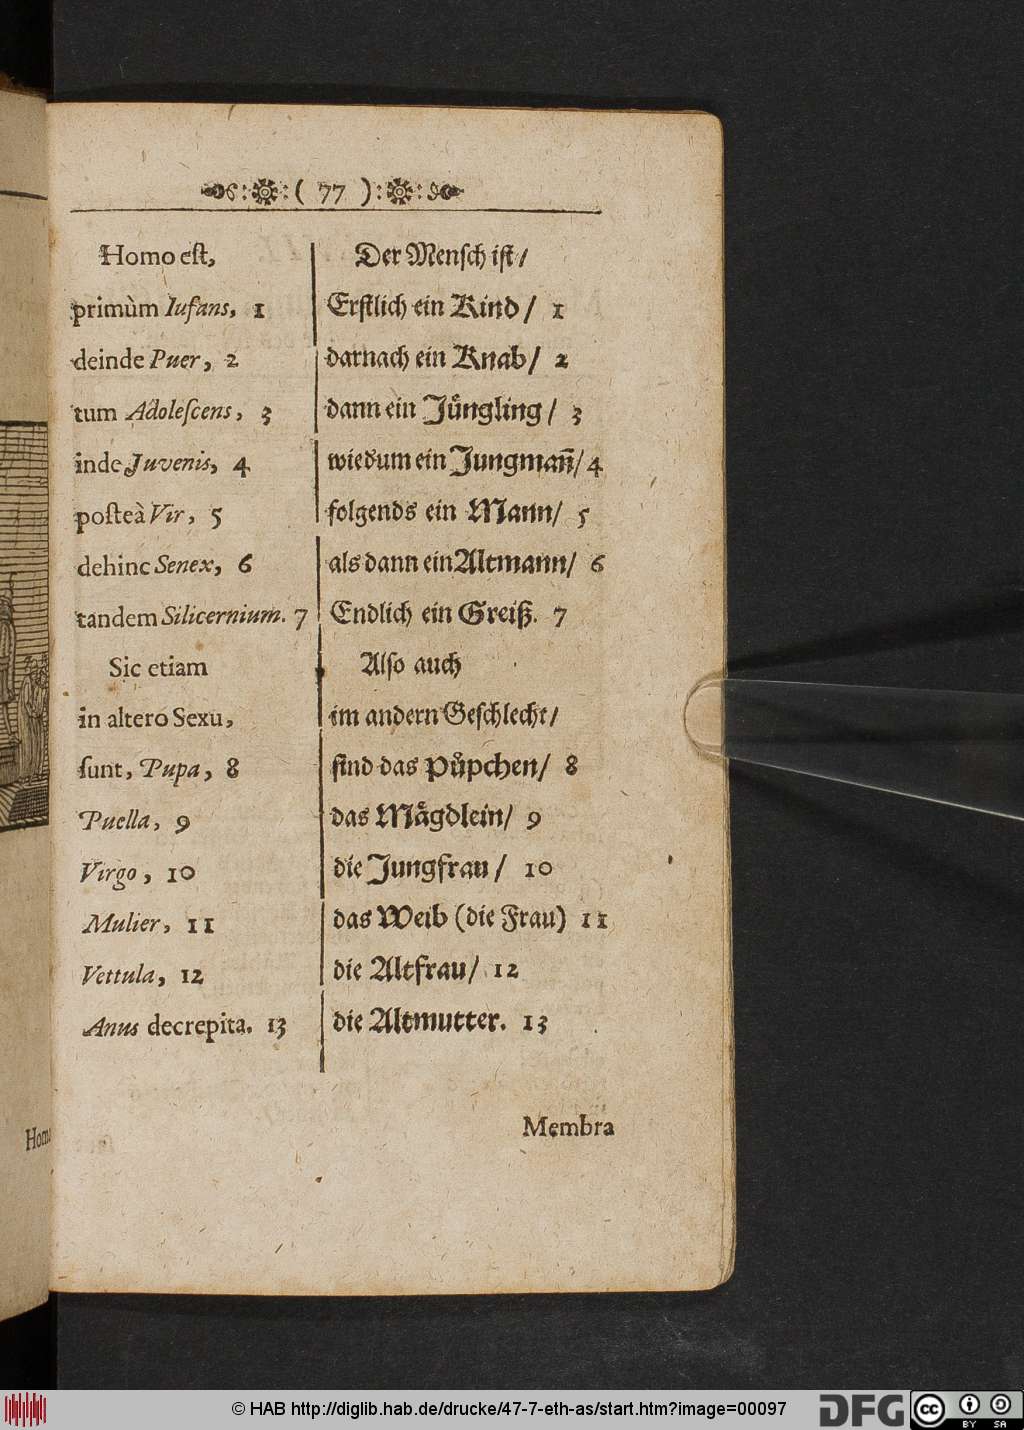 ( 77 )
Homo est,
primùm Iufans, 1
deinde Puer, 2
tum Adolescens, 3
inde Juvenis, 4
posteà Vir, 5
dehinc Senex, 6
tandem Silicernium. 7
Sic etiam
in altero Sexu,
sunt, Pupa, 8
Puella, 9
Virgo, 10
Mulier, 11
Vettula, 12
Anus decrepita. 13
Der Mensch ist/
Erstlich ein Kind/ 1
darnach ein Knab/ 2
dann ein Jůngling/ 3
wiedum ein Jungmañ/ 4
folgends ein Mann/ 5
als dann ein Altmann/ 6
Endlich ein Greiß. 7
Also auch
im andern Geschlecht/
sind das Půpchen/ 8
das Mågdlein/ 9
die Jungfrau/ 10
das Weib (die Frau) 11
die Altfrau/ 12
die Altmutter. 13
Membra
© HAB http://diglib.hab.de/drucke/47-7-eth-as/start.htm?image=00097
DFG
cc
BY SA